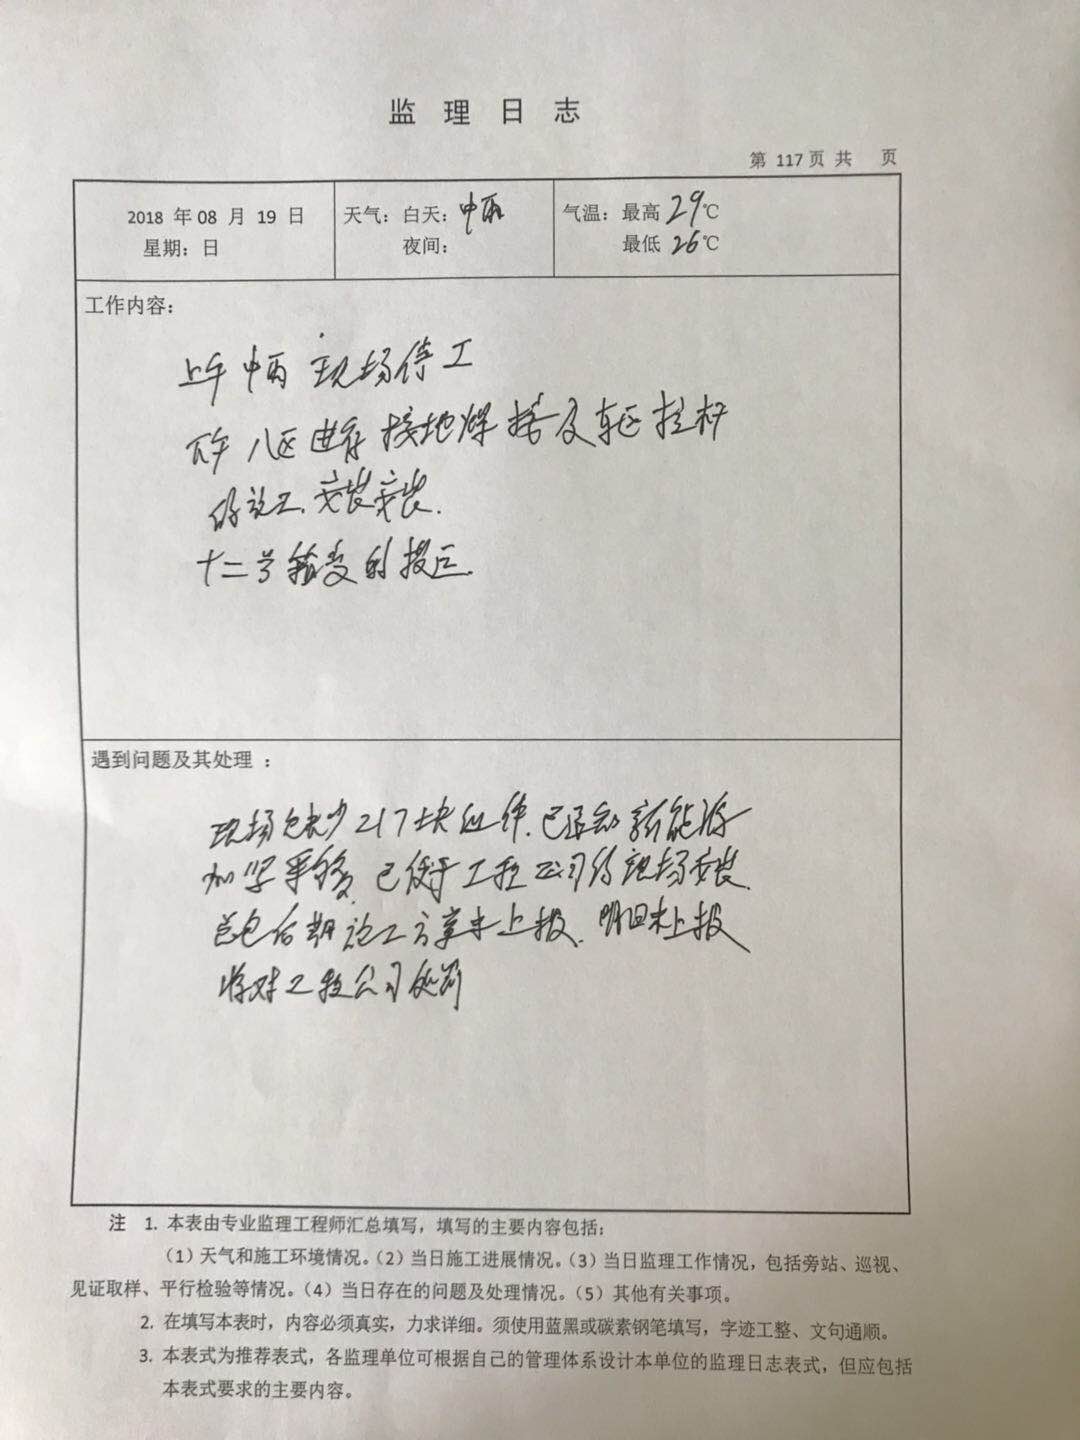 监理日志
第 117 页 共 页
2018 年 08 月 19 日
星期：日
天气：白天：中雨
夜间：
气温：最高 29℃
最低 26℃
工作内容：
上午中雨 现场停工
下午 八区进行接地焊接及车区拉杆
的施工.安装安装.
十二号箱变的投运.
遇到问题及其处理 ：
现场缺少217块组件.已通知新能源
加紧 已便于工程公司的现场安装.
总包后期施工方案未上报.明日未上报
将对工程公司处罚
注 1. 本表由专业监理工程师汇总填写，填写的主要内容包括：
（1）天气和施工环境情况。（2）当日施工进展情况。（3）当日监理工作情况，包括旁站、巡视、
见证取样、平行检验等情况。（4）当日存在的问题及处理情况。（5）其他有关事项。
2. 在填写本表时，内容必须真实，力求详细。须使用蓝黑或碳素钢笔填写，字迹工整、文句通顺。
3. 本表式为推荐表式，各监理单位可根据自己的管理体系设计本单位的监理日志表式，但应包括
本表式要求的主要内容。